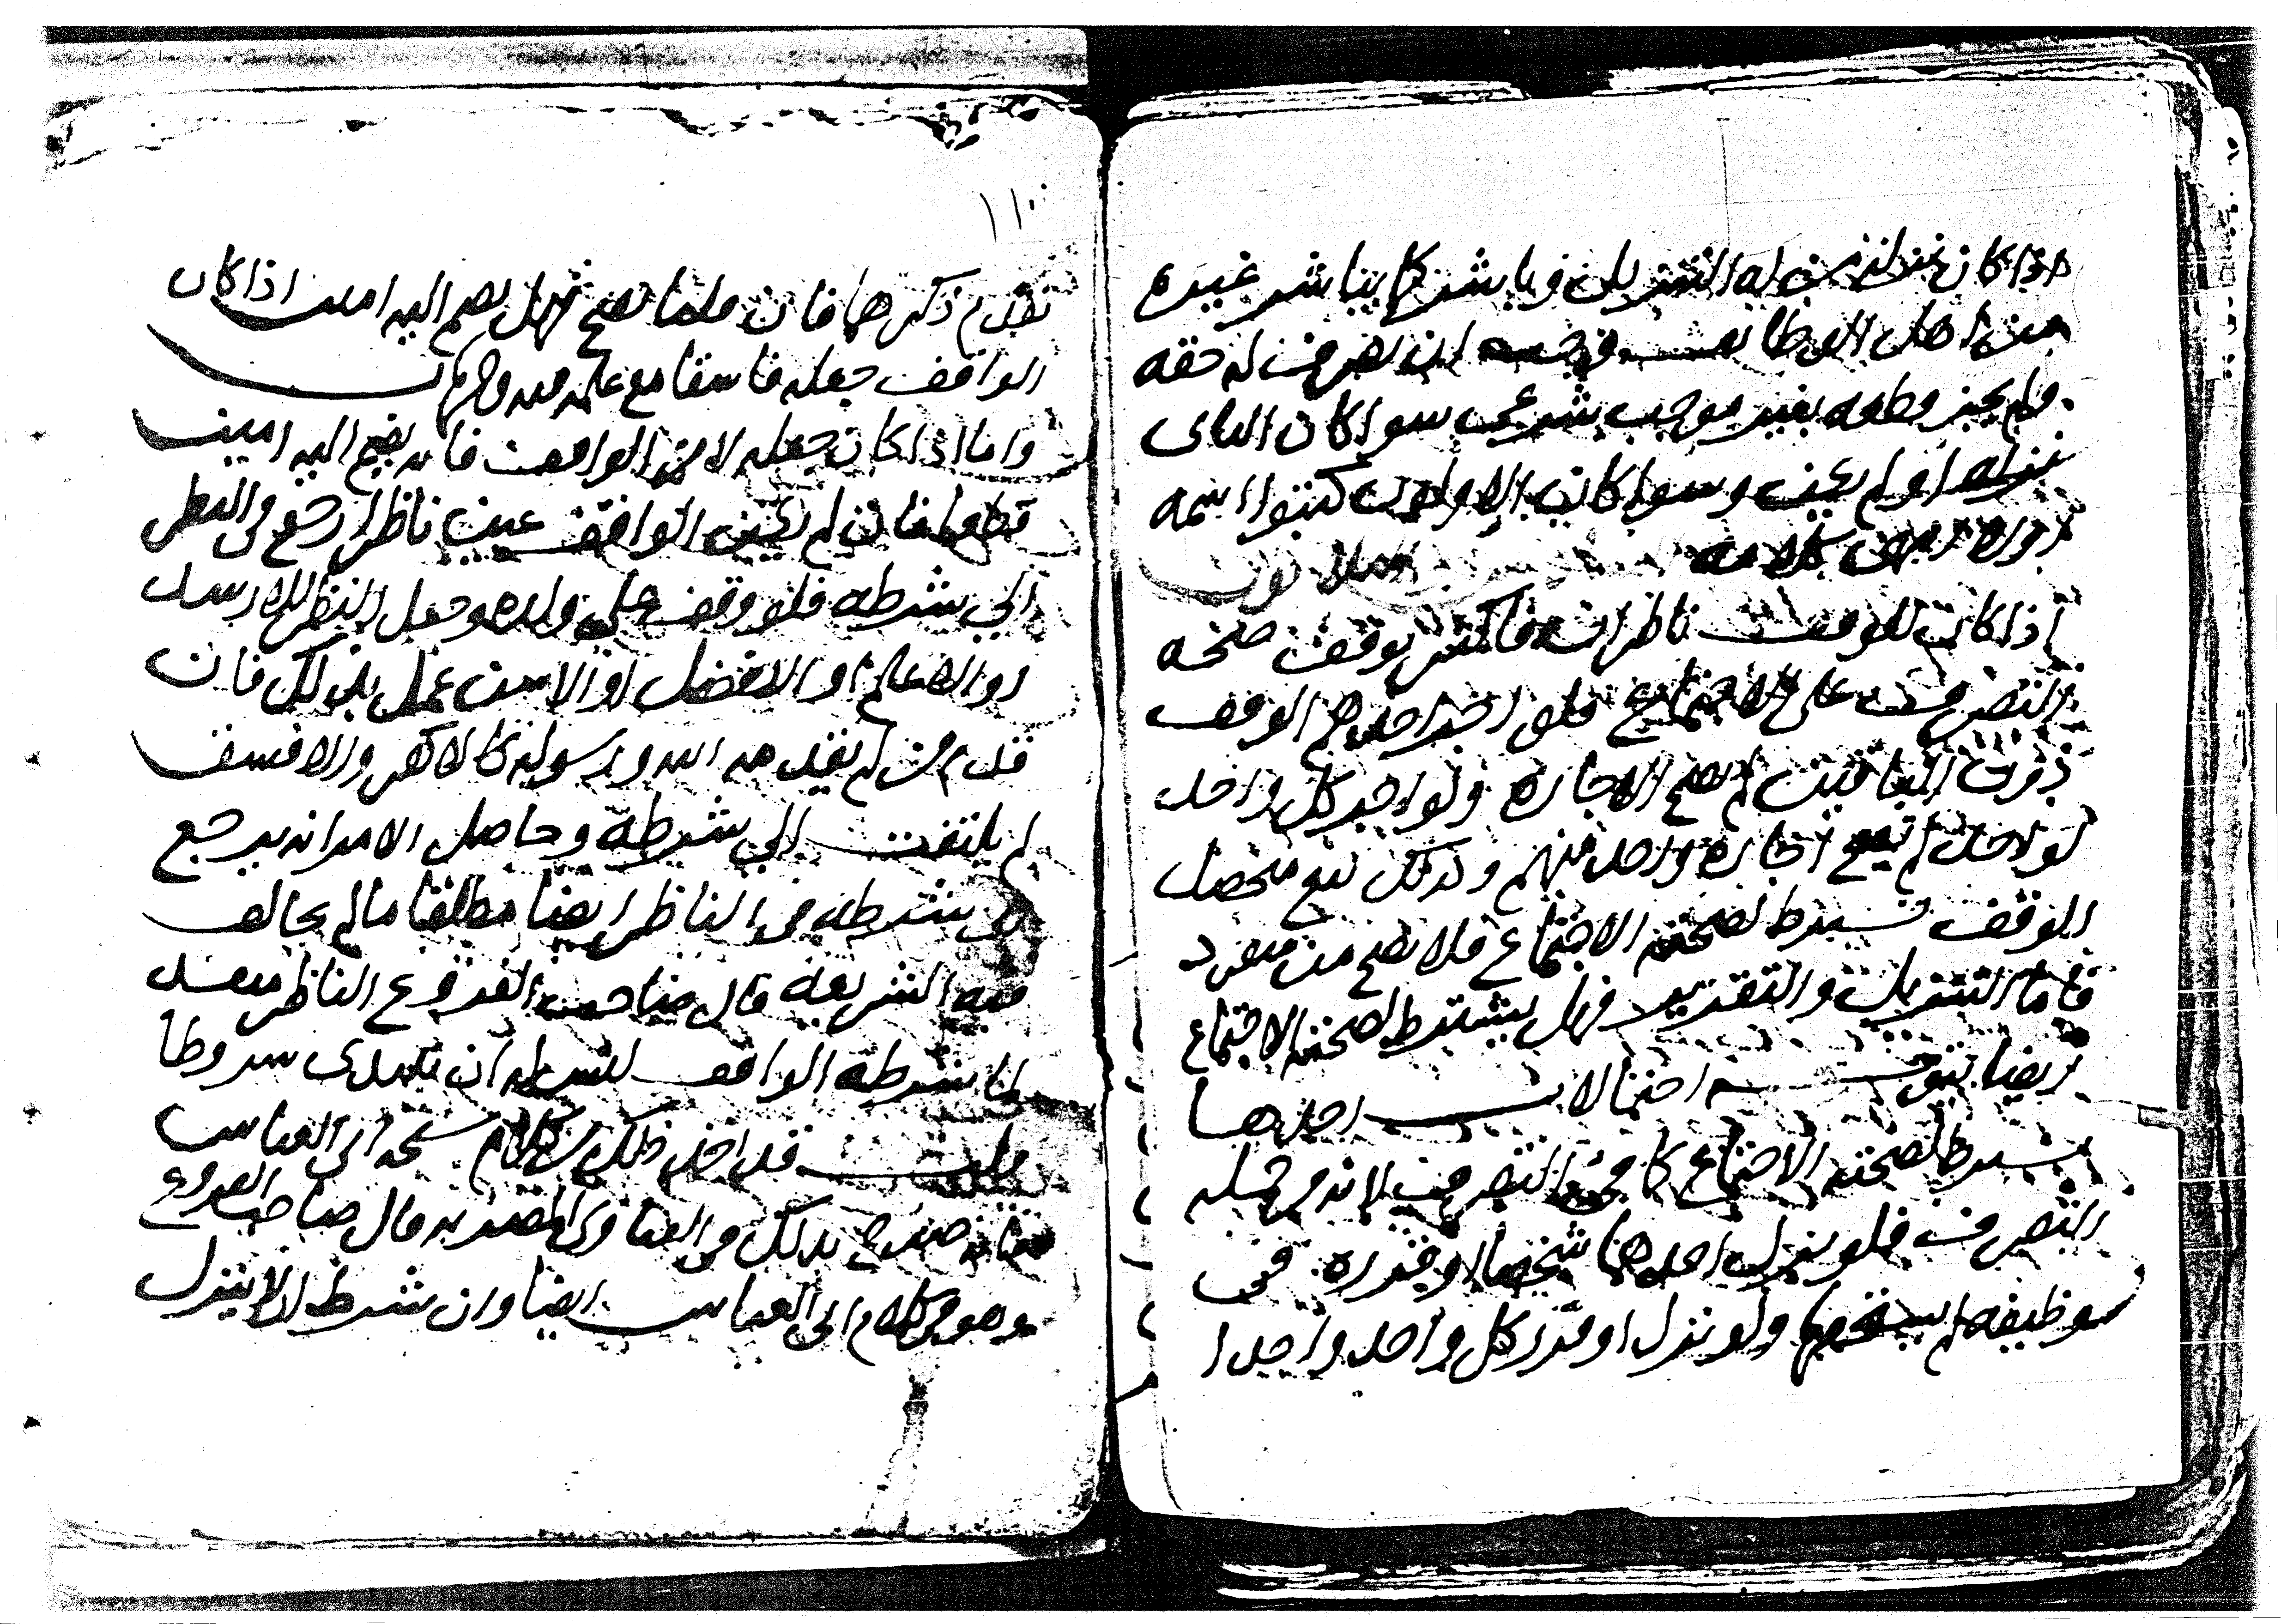 اذا كان نزله من له التنزيل وباشر كما يباشر غيره
من اهل الوظائف وجب ان يصرف له حقه
ولم يجز قطعه بغير موجب شرعي سوا كان الباني
نزله او لم يعين وسوا كان الاولون كتبوا اسمه
كلامه
اذا كان للوقف ناظران فاكثر توقف صحة
التصرف على الاجتماع فلو اجر احدهم الوقف
دون الباقين لم تصح الاجارة ولو اجر كل واحد
لواحد لم تصح اجارة واحد منهم وكذلك بيع متحصل
الوقف يشترط لصحته الاجتماع فلا يصح من منفرد
فاما التنزيل والتقدير فهل يشترط لصحته الاجتماع
ايضا يتوجه احتمالان احدهما
يشترط لصحته الاجتماع كما في التصرف لانه من جملة
التصرف فلو نزل احدهما شخصا او قدره في
وظيفه لم يستحقها ولو نزل او قدر كل واحد واحدا
١١٠
تقدم ذكرهما فان قلنا تصح فهل يضم اليه امين اذا كان
الواقف جعله فاسقا مع علمه فيه وجهان
واما اذا كان جعله الامر الواقف فانه يضم اليه امين
قطعا فان لم يعين الواقف عين ناظرا رجع في النظر
الي شرطه فلو وقف علي ولده وجعل النظر للارشد
او الاعلم او الافضل او الاسن عمل بذلك فان
قدم من لم يقدمه الله ورسوله كالاكفر والافسق
لم يلتفت الي شرطه وحاصل الامر انه يرجع
الي شرطه في الناظر ايضا مطلقا ما لم يخالف
فيه الشريعة قال صاحب الفروع الناظر منفذ
لما شرطه الواقف ليس له ان يبتدي شروطا
قلت قد اخذ ذلك من كلام شيخه ابي العباس
فانه صرح بذلك في الفتاوي المصرية قال صاحب الفروع
وهو من كلام ابي العباس ايضا وان شرط ان لا ينزل